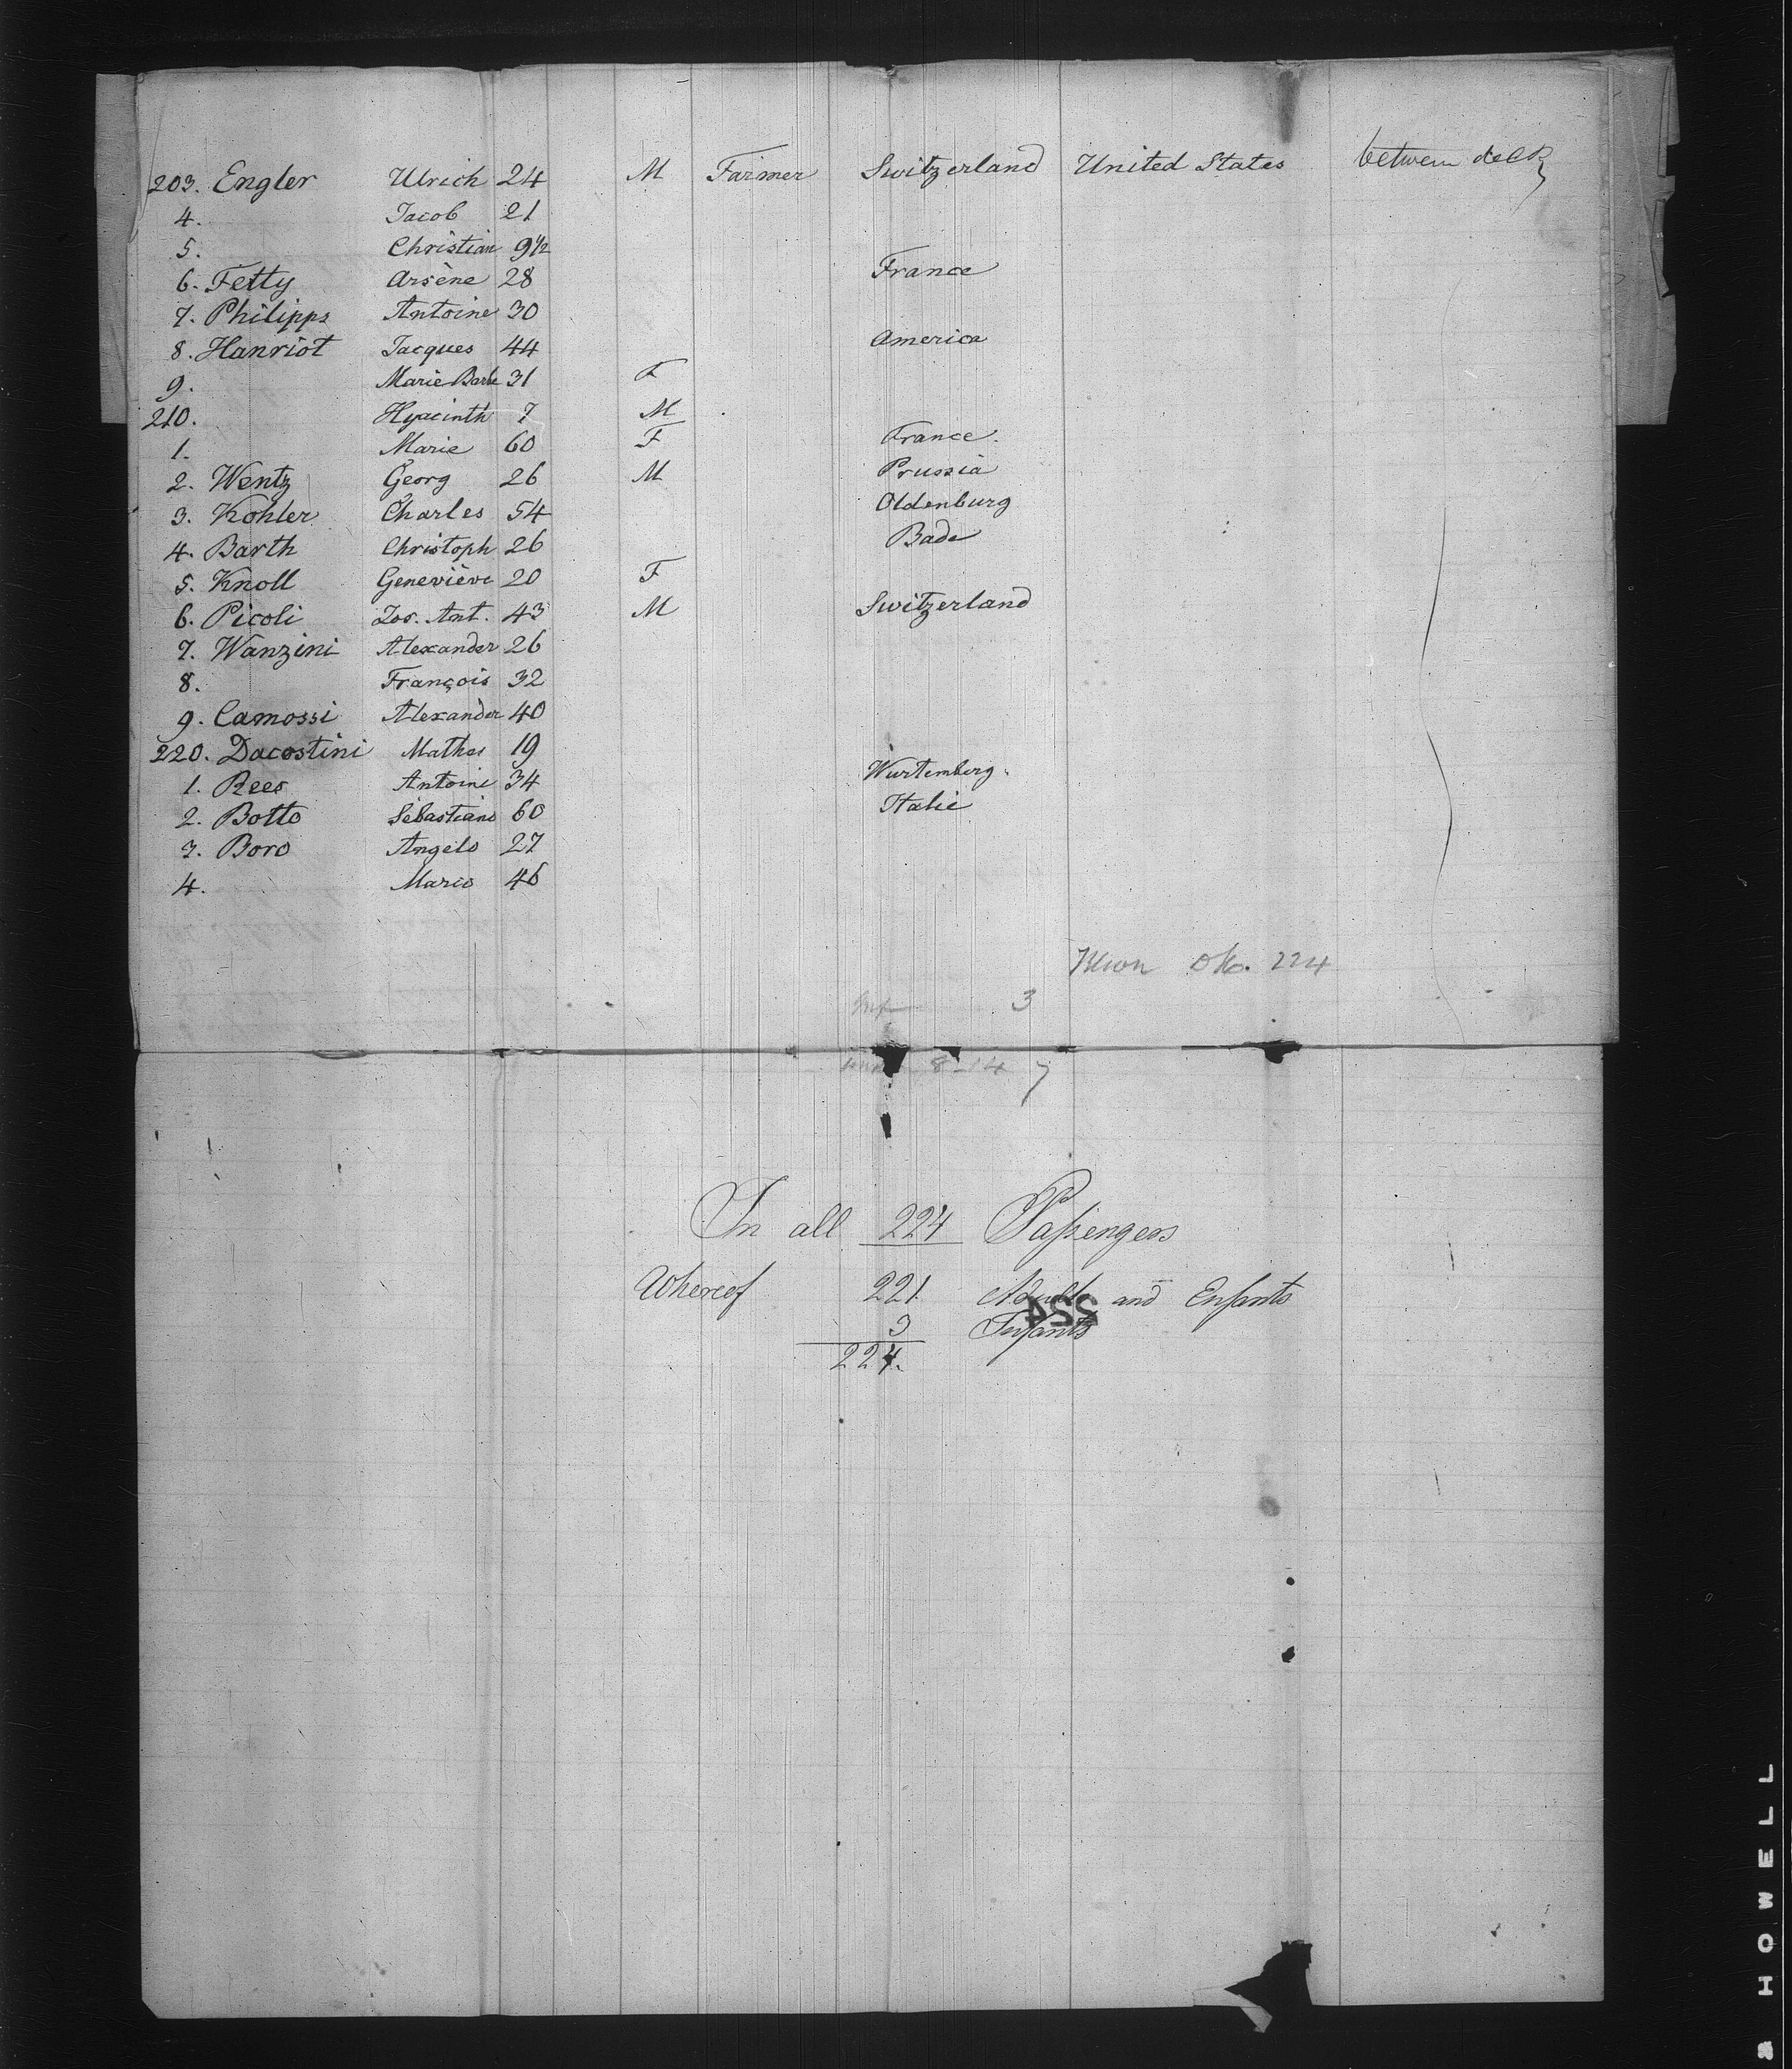 203. Engler Ulrich 24 M Farmer Switzerland United States between deck
4. Jacob 21
5. Christian 9 1/2
6. Fetty Arsène 28 France
7. Philipps Antoine 30
8. Hanriot Jacques 44 America
9. Marie Barbe 31 F
210. Hyacinth 7 M
1. Marie 60 F France.
2. Wentz Georg 26 M Prussia
3. Kohler Charles 54 Oldenburg
4. Barth Christoph 26 Bade
5. Knoll Geneviève 20 F
6. Picoli Jos. Ant. 43 M Switzerland
7. Wanzini Alexander 26
8. François 32
9. Camossi Alexander 40
220. Dacostini Mathes 19
1. Rees Antoine 34 Wurtemberg.
2. Botto Sebastiano 60 Italie
3. Boro Angelo 27
4. Mario 46
224
3
8-14 7
In all 224 Passengers
Whereof 221 Adults and Enfants
3 Infants
224.
HOWELL